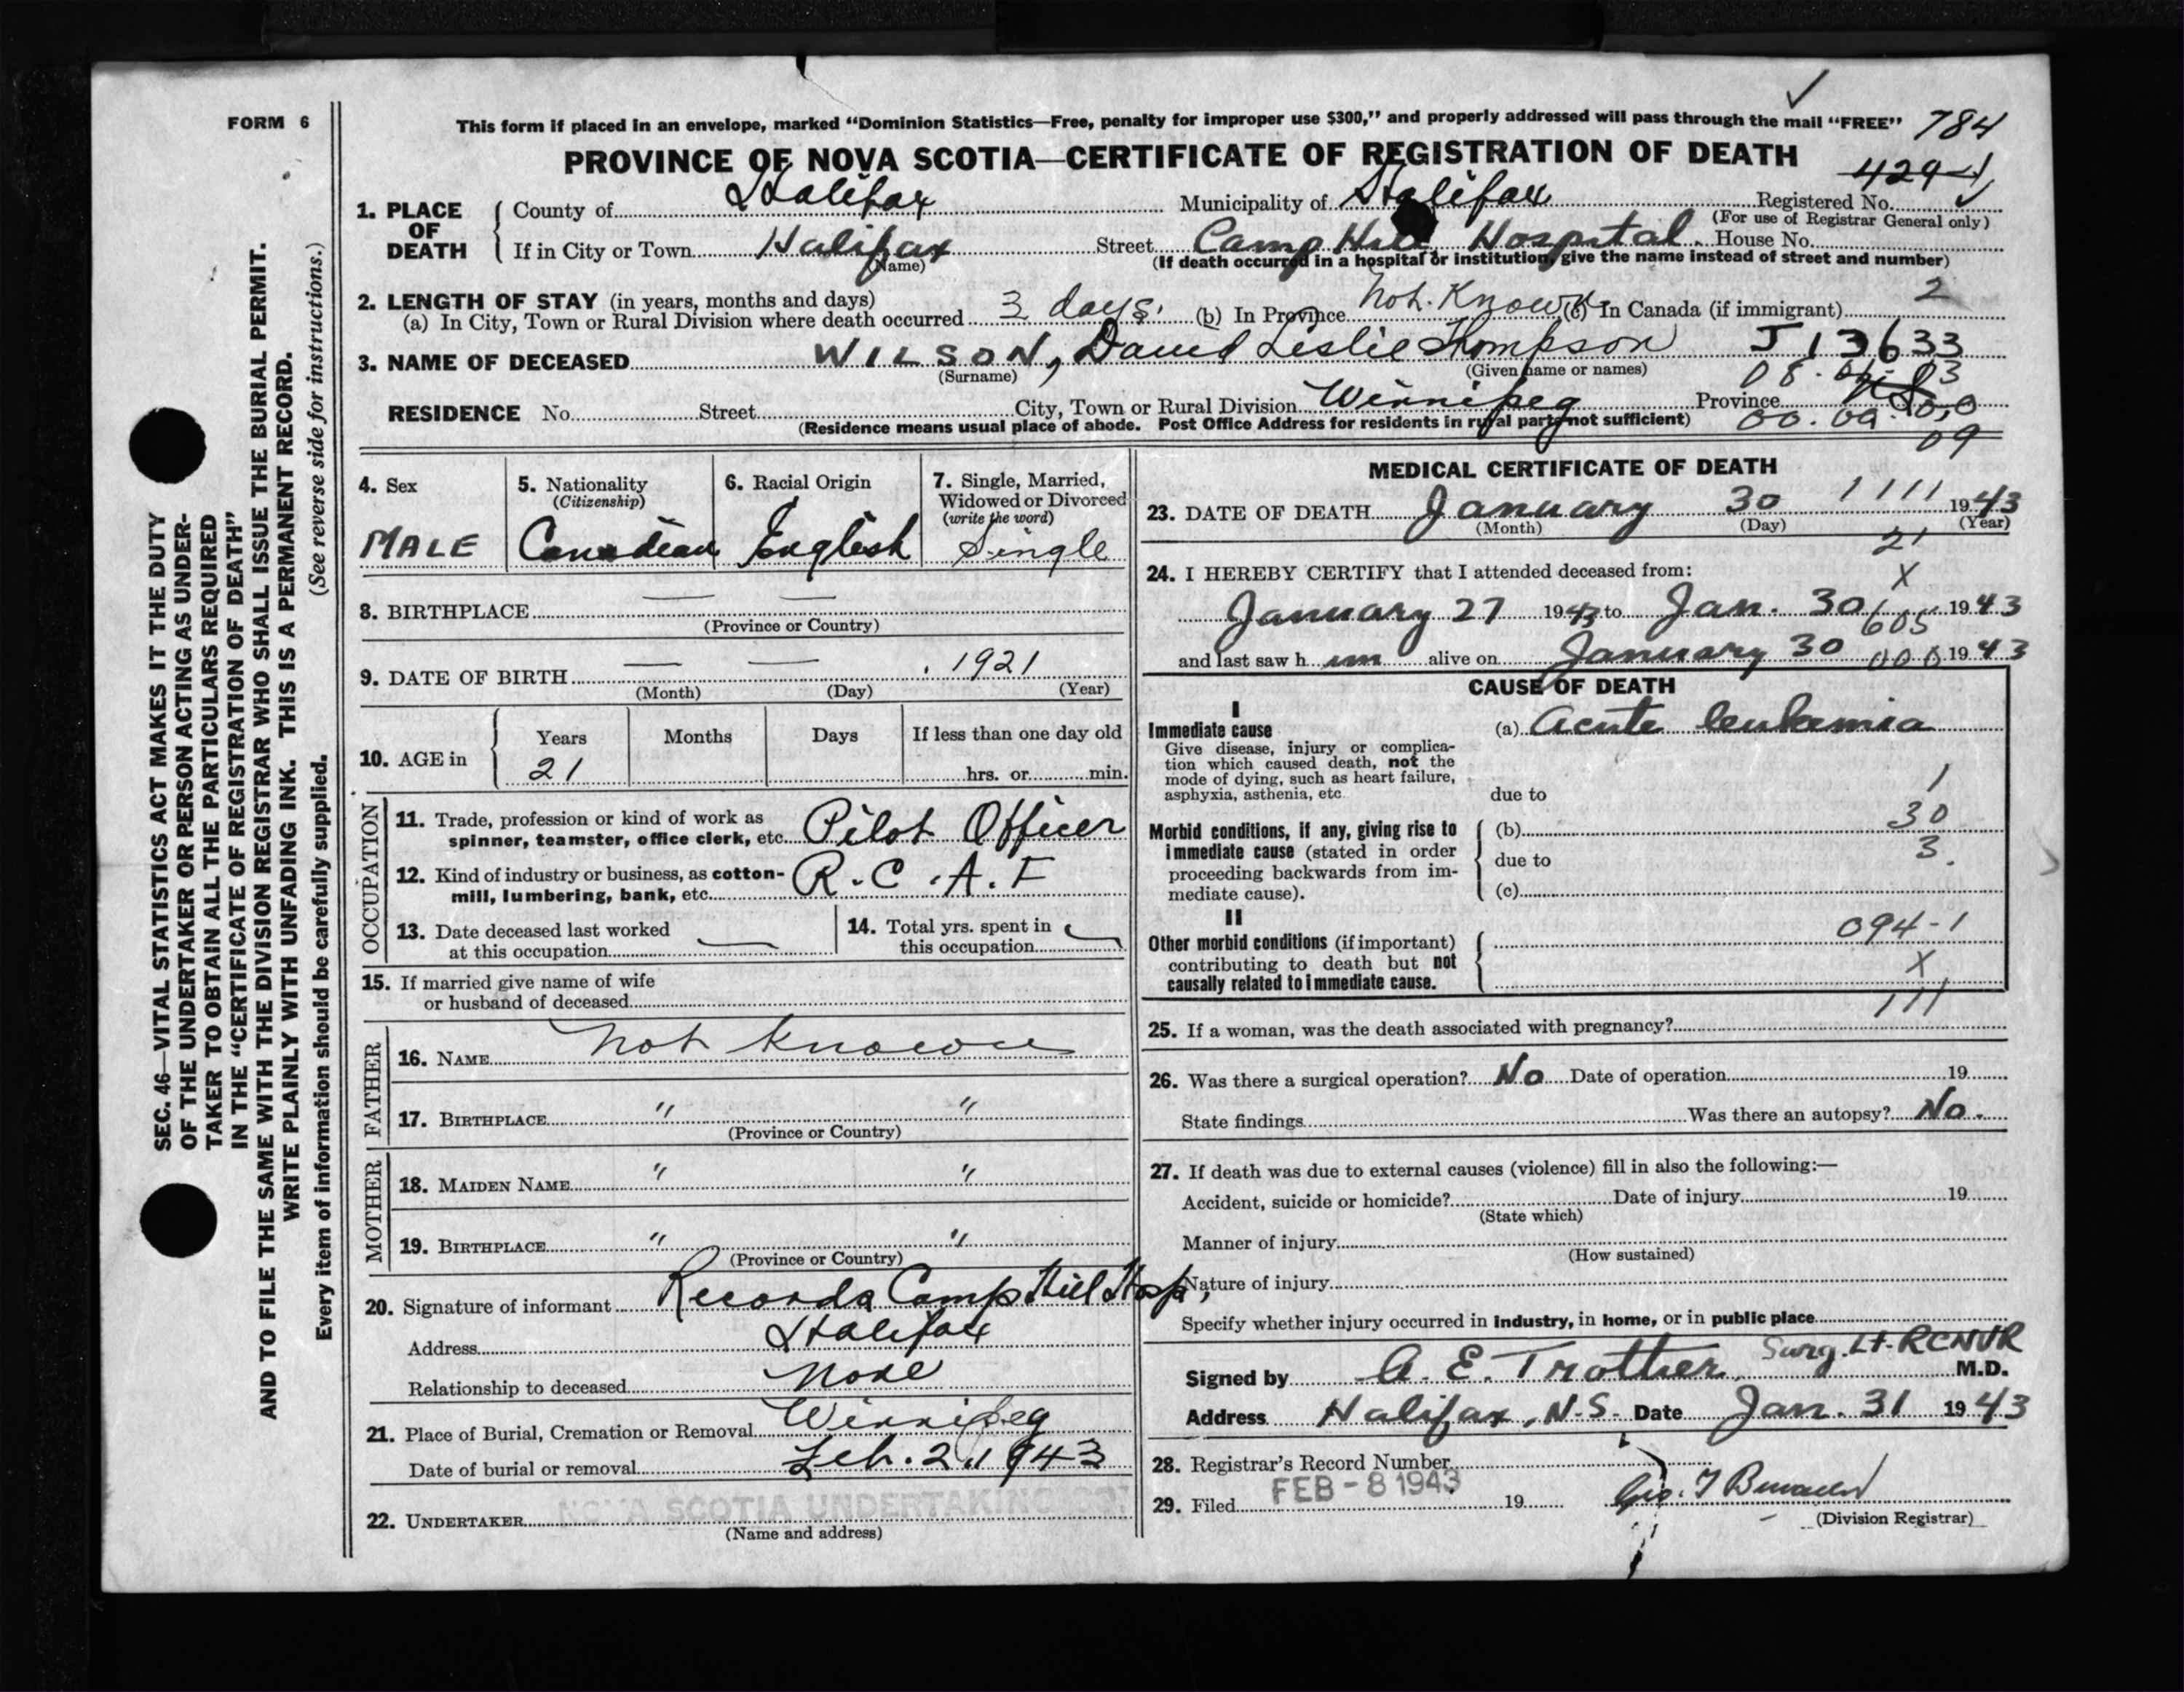 FORM 6
This form if placed in an envelope, marked "Dominion Statistics—Free, penalty for improper use $300," and properly addressed will pass through the mail "FREE"
784
PROVINCE OF NOVA SCOTIA—CERTIFICATE OF REGISTRATION OF DEATH
429
1. PLACE OF DEATH County of Halifax Municipality of Halifax Registered No.
(For use of Registrar General only)
If in City or Town Halifax Street Camp Hill Hospital. House No.
(Name) (If death occurred in a hospital or institution, give the name instead of street and number)
2. LENGTH OF STAY (in years, months and days)
(a) In City, Town or Rural Division where death occurred 3 days. (b) In Province Not. Known (c) In Canada (if immigrant) 2
3. NAME OF DECEASED WILSON, David Leslie Thompson J 13633
(Surname) (Given name or names)
RESIDENCE No. Street City, Town or Rural Division Winnipeg Province
(Residence means usual place of abode. Post Office Address for residents in rural parts not sufficient)
09
4. Sex
MALE
5. Nationality
(Citizenship)
Canadian
6. Racial Origin
English
7. Single, Married,
Widowed or Divorced
(write the word)
Single
8. BIRTHPLACE — —
(Province or Country)
9. DATE OF BIRTH — — . 1921
(Month) (Day) (Year)
10. AGE in Years Months Days If less than one day old
21 hrs. or min.
OCCUPATION
11. Trade, profession or kind of work as
spinner, teamster, office clerk, etc. Pilot Officer
12. Kind of industry or business, as cotton-
mill, lumbering, bank, etc. R.C.A.F
13. Date deceased last worked
at this occupation —
14. Total yrs. spent in
this occupation —
15. If married give name of wife
or husband of deceased
FATHER
16. NAME Not Known
17. BIRTHPLACE " "
(Province or Country)
MOTHER
18. MAIDEN NAME " "
19. BIRTHPLACE " "
(Province or Country)
20. Signature of informant Records Camp Hill Hosp,
Address Halifax
Relationship to deceased None
21. Place of Burial, Cremation or Removal Winnipeg
Date of burial or removal Feb. 2, 1943
22. UNDERTAKER NOVA SCOTIA UNDERTAKING CO
(Name and address)
MEDICAL CERTIFICATE OF DEATH
23. DATE OF DEATH January 30 1111 1943
(Month) (Day) (Year)
21
24. I HEREBY CERTIFY that I attended deceased from: X
January 27 1943 to Jan. 30 1943
605
and last saw h im alive on January 30 000 1943
CAUSE OF DEATH
I
Immediate cause (a) Acute leukemia
Give disease, injury or complica-
tion which caused death, not the
mode of dying, such as heart failure,
asphyxia, asthenia, etc.
due to 1
Morbid conditions, if any, giving rise to (b) 30
immediate cause (stated in order due to 3.
proceeding backwards from im-
mediate cause). (c)
II
Other morbid conditions (if important) 094-1
contributing to death but not X
causally related to immediate cause.
111
25. If a woman, was the death associated with pregnancy?
26. Was there a surgical operation? No Date of operation 19
State findings Was there an autopsy? No.
27. If death was due to external causes (violence) fill in also the following:—
Accident, suicide or homicide? Date of injury 19
(State which)
Manner of injury
(How sustained)
Nature of injury
Specify whether injury occurred in industry, in home, or in public place
Signed by A. E. Trotter, Surg. Lt-RCNVR M.D.
Address Halifax, N.S. Date Jan. 31 1943
28. Registrar's Record Number
29. Filed FEB - 8 1943 19
(Division Registrar)
SEC. 46—VITAL STATISTICS ACT MAKES IT THE DUTY
OF THE UNDERTAKER OR PERSON ACTING AS UNDER-
TAKER TO OBTAIN ALL THE PARTICULARS REQUIRED
IN THE "CERTIFICATE OF REGISTRATION OF DEATH"
AND TO FILE THE SAME WITH THE DIVISION REGISTRAR WHO SHALL ISSUE THE BURIAL PERMIT.
WRITE PLAINLY WITH UNFADING INK. THIS IS A PERMANENT RECORD.
Every item of information should be carefully supplied. (See reverse side for instructions.)